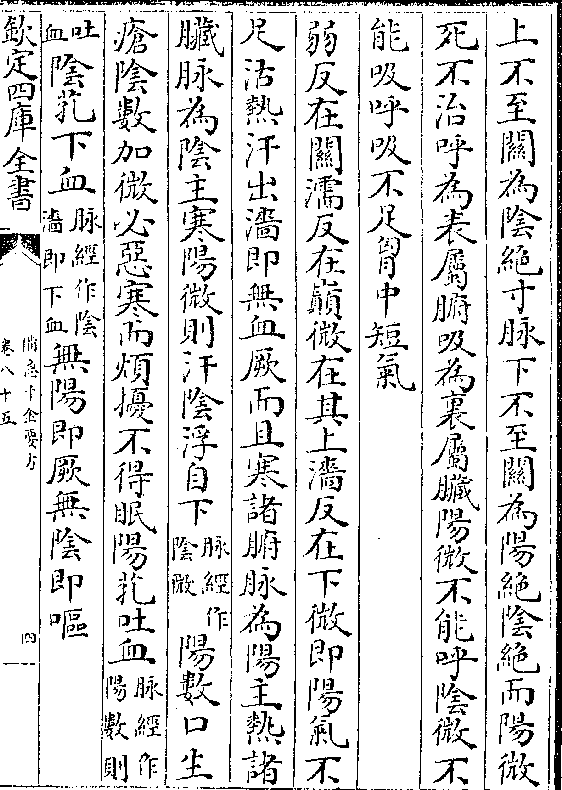 上不至關為陰絶寸脉下不至關為陽絶陰絶而陽微
死不治呼為表屬腑吸為裏屬臟陽微不能呼陰微不
能吸呼吸不足胷中短氣
弱反在關濡反在巔微在其上濇反在下微即陽氣不
足沾熱汗出濇即無血厥而且寒諸腑脉為陽主熱諸
臟脉為陰主寒陽微則汗陰浮自下脉經作陰微陽數口生
瘡陰數加微必惡寒而煩擾不得眠陽芤吐血脉經作陽數則
吐血陰芤下血脉經作陰濇即下血無陽即厥無陰即嘔
欽定四庫全書
備急千金要方
卷八十五
四